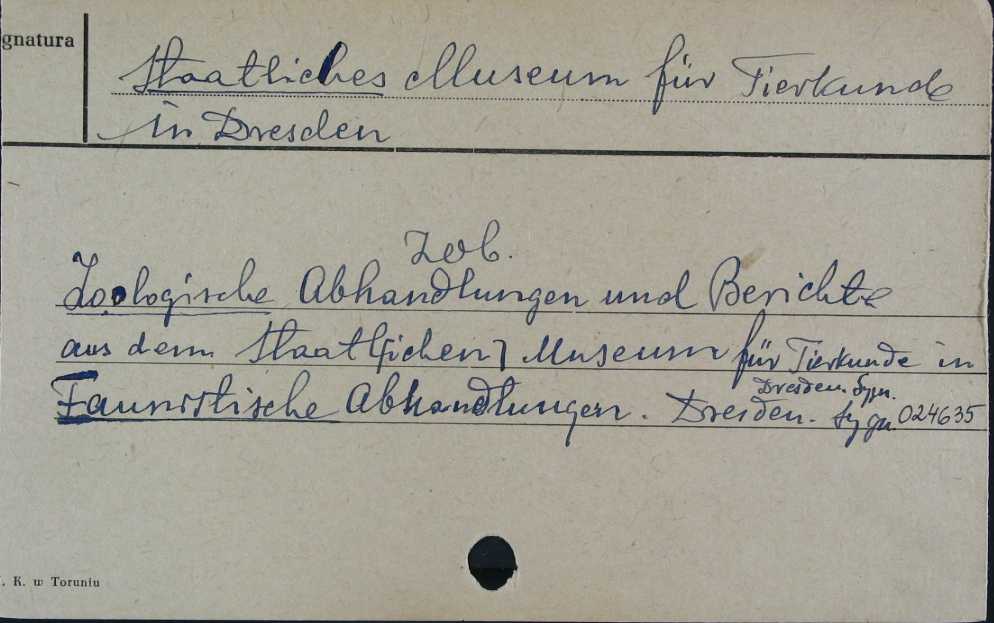 gnatura
Staatliches Museum für Tierkunde
in Dresden
Zob.
Zoologische Abhandlungen und Berichte
aus dem Staatl[ichen] Museum für Tierkunde in
Dresden. Sygn.
Faunistische Abhandlungen. Dresden. Sygn. 024635
. K. w Toruniu